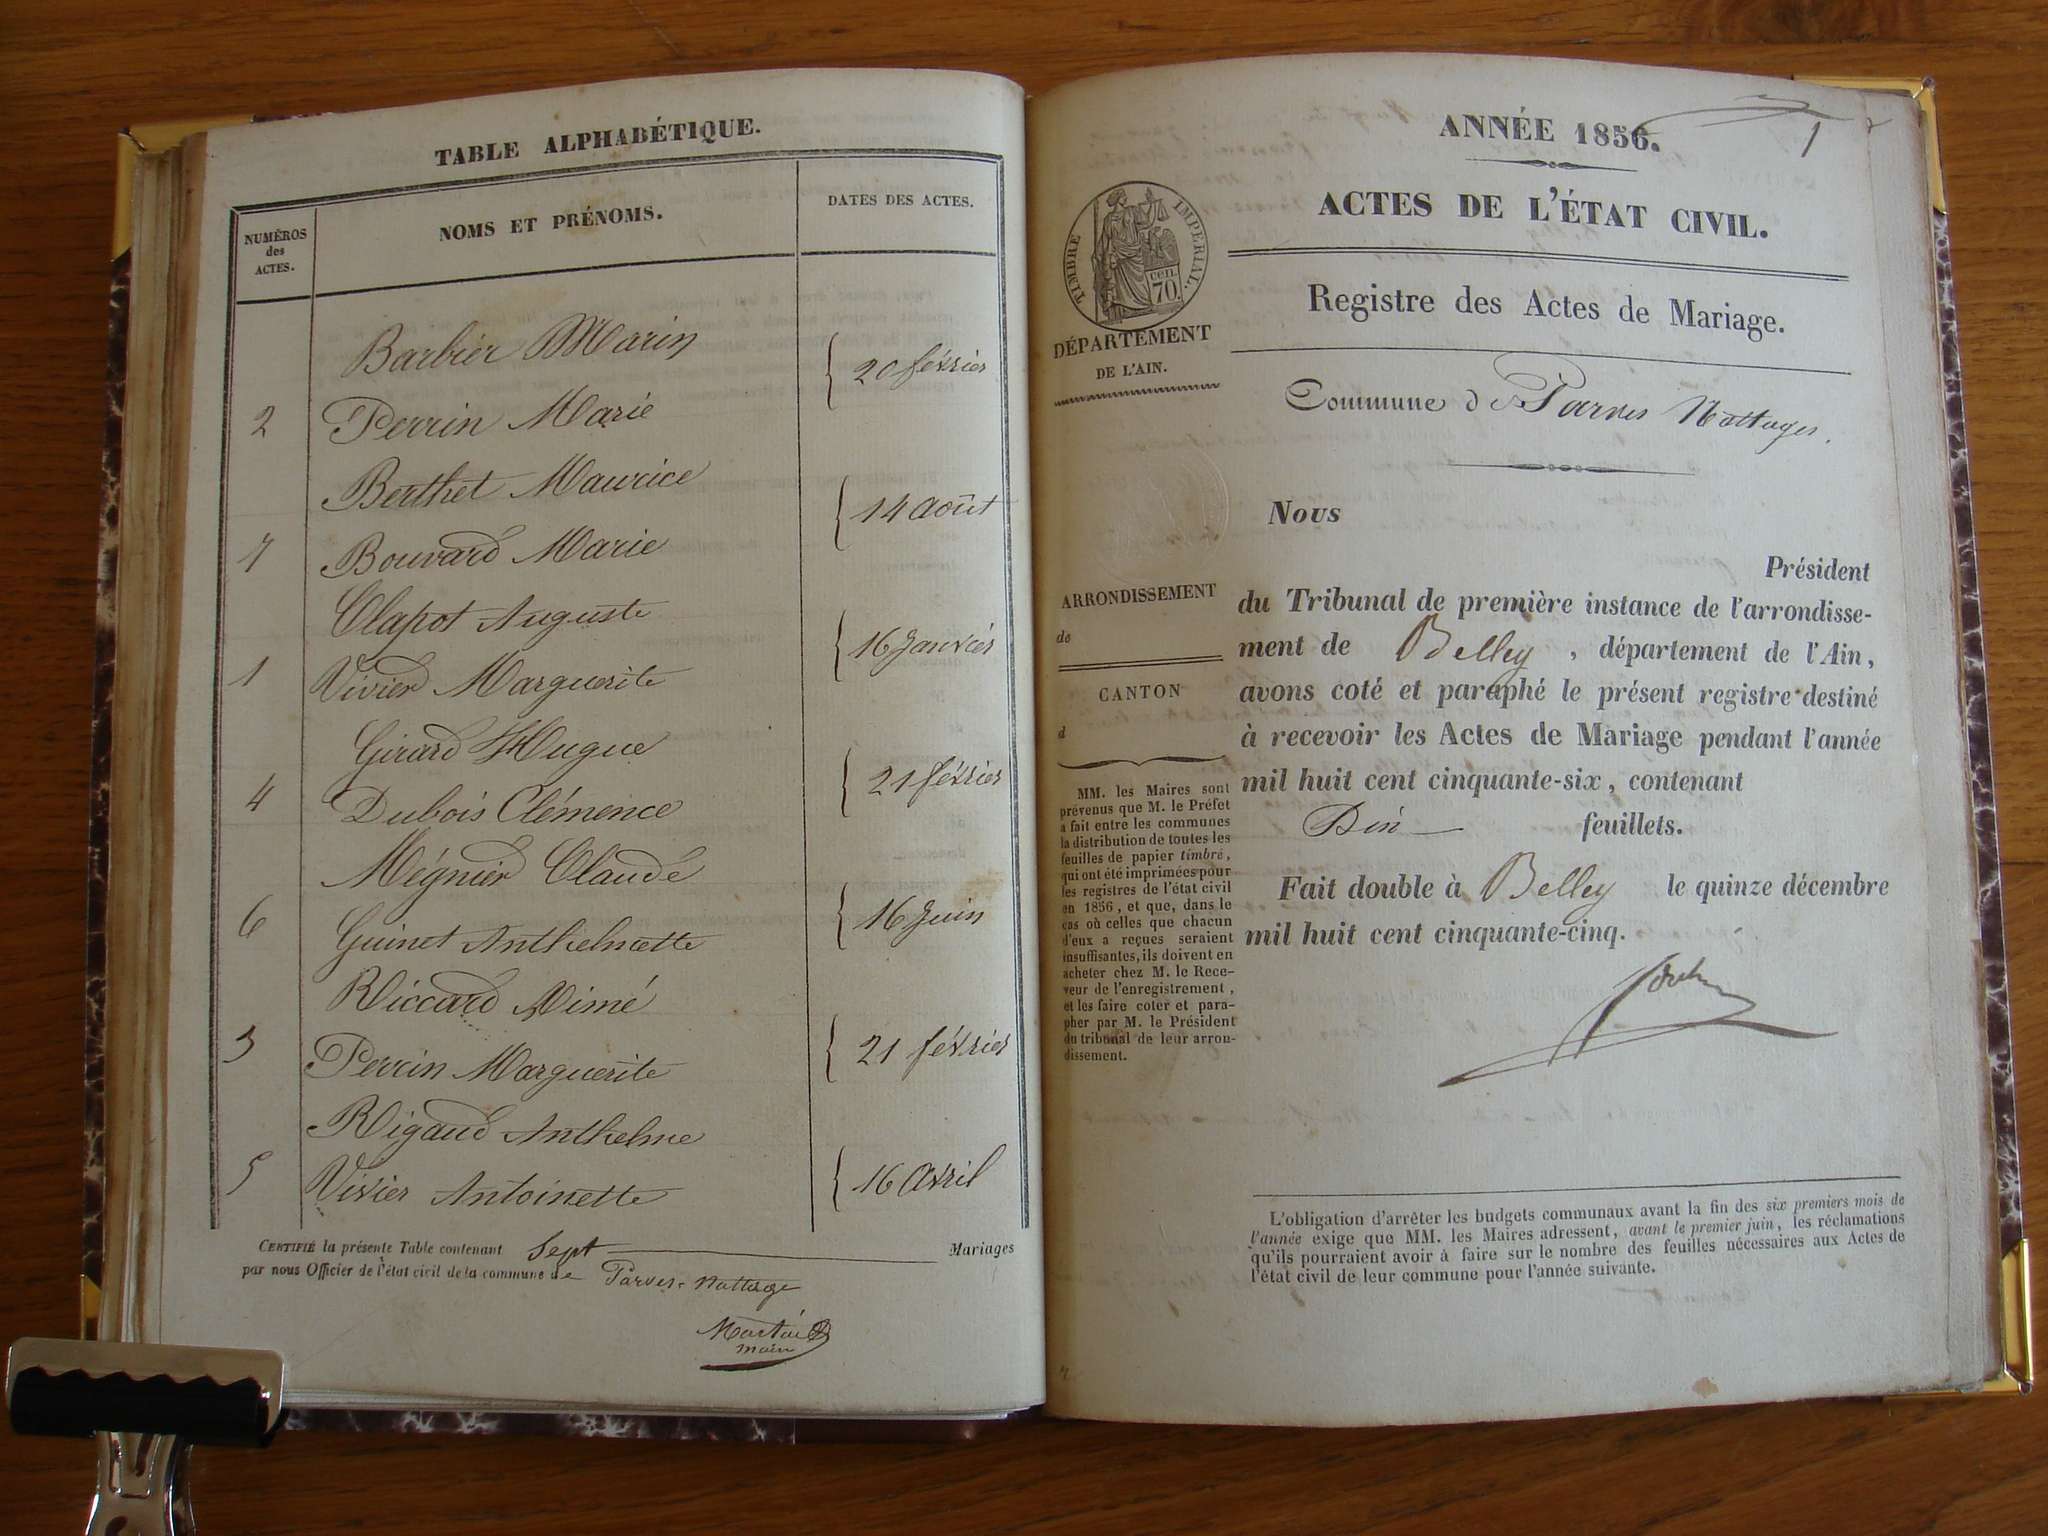 TABLE ALPHABÉTIQUE.
NUMÉROS
des
ACTES.
NOMS ET PRÉNOMS.
DATES DES ACTES.
Barbier Marin
20 février
2 Perrin Marie
Berthet Maurice
14 Août
7 Bouvard Marie
Clapot Auguste
16 Janvier
1 Vivier Marguerite
Girard Hugue
21 février
4 Dubois Clémence
Mégnier Claude
16 Juin
6 Guinet Anthelmette
Riccard Aimé
21 février
3 Perrin Marguerite
Rigaud Anthelme
16 Avril
5 Vivier Antoinette
CERTIFIÉ la présente Table contenant Sept Mariages
par nous Officier de l'état civil de la commune de Parves-Nattage
ANNÉE 1856.
1
ACTES DE L'ÉTAT CIVIL.
TIMBRE IMPERIAL.
cen.
70.
Registre des Actes de Mariage.
DÉPARTEMENT
DE L'AIN.
Commune de Parves Nattages.
Nous
Président
du Tribunal de première instance de l'arrondisse-
ment de Belley, département de l'Ain,
avons coté et paraphé le présent registre destiné
à recevoir les Actes de Mariage pendant l'année
mil huit cent cinquante-six, contenant
feuillets.
Fait double à Belley le quinze décembre
mil huit cent cinquante-cinq.
ARRONDISSEMENT
de
CANTON
d
MM. les Maires sont
prévenus que M. le Préfet
a fait entre les communes
la distribution de toutes les
feuilles de papier timbré,
qui ont été imprimées pour
les registres de l'état civil
en 1856, et que, dans le
cas où celles que chacun
d'eux a reçues seraient
insuffisantes, ils doivent en
acheter chez M. le Rece-
veur de l'enregistrement,
et les faire coter et para-
pher par M. le Président
du tribunal de leur arron-
dissement.
L'obligation d'arrêter les budgets communaux avant la fin des six premiers mois de
l'année exige que MM. les Maires adressent, avant le premier juin, les réclamations
qu'ils pourraient avoir à faire sur le nombre des feuilles nécessaires aux Actes de
l'état civil de leur commune pour l'année suivante.